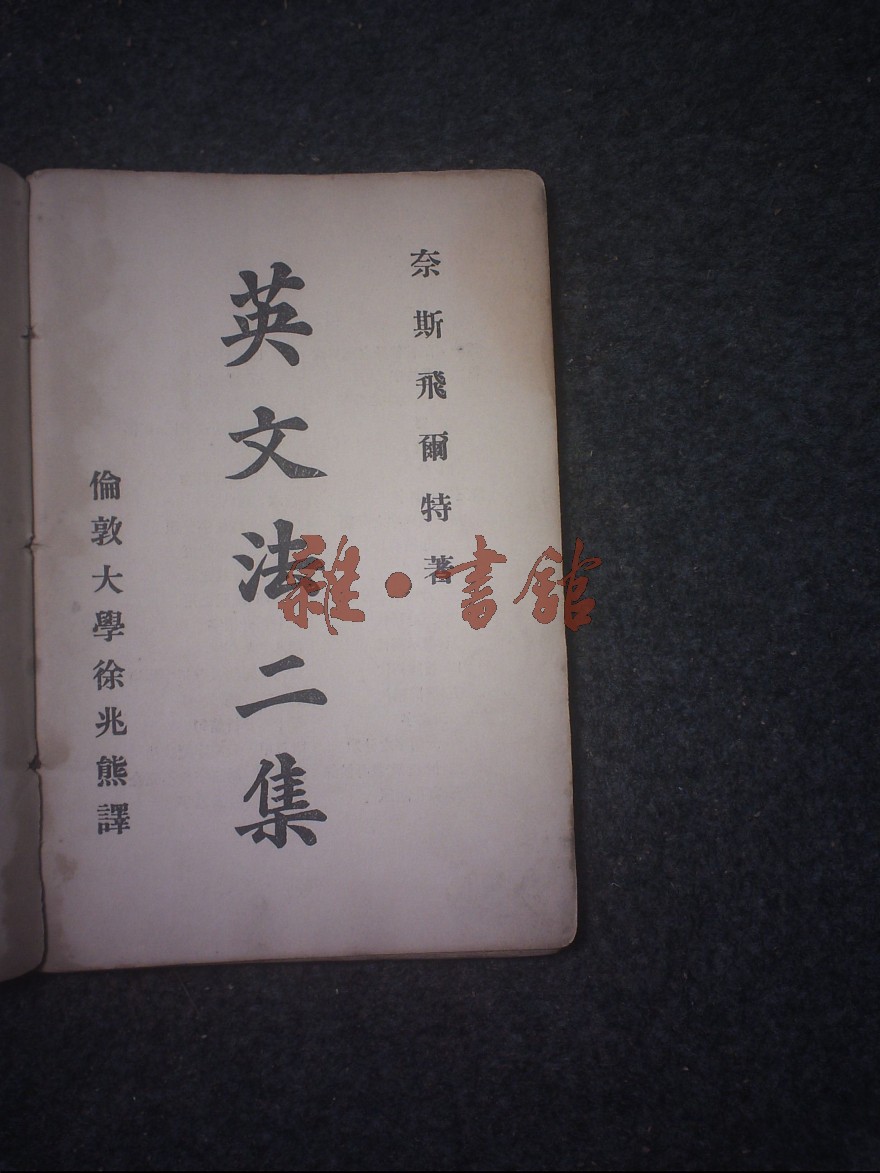 奈斯飛爾特著
英文法二集
倫敦大學徐兆熊譯
雜·書館